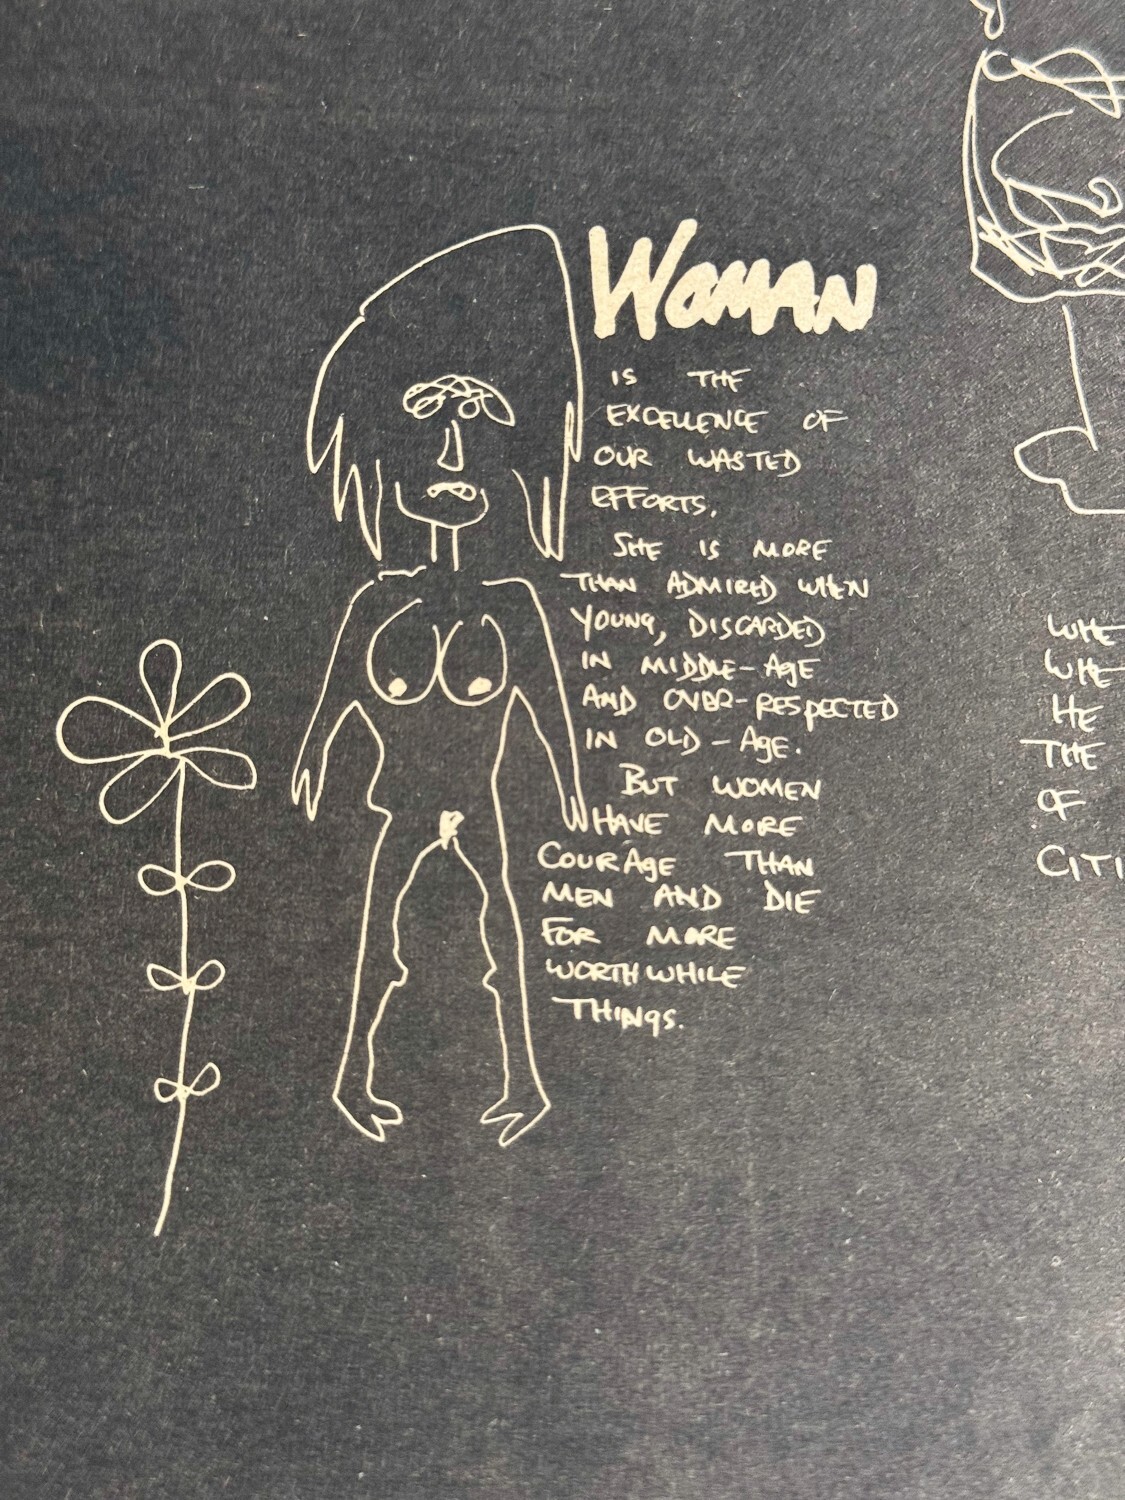 WOMAN
IS THE
EXCELLENCE OF
OUR WASTED
EFFORTS.
SHE IS MORE
THAN ADMIRED WHEN
YOUNG, DISCARDED
IN MIDDLE-AGE
AND OVER-RESPECTED
IN OLD-AGE.
BUT WOMEN
HAVE MORE
COURAGE THAN
MEN AND DIE
FOR MORE
WORTHWHILE
THINGS.
WHE
WHE
HE
THE
OF
CITI